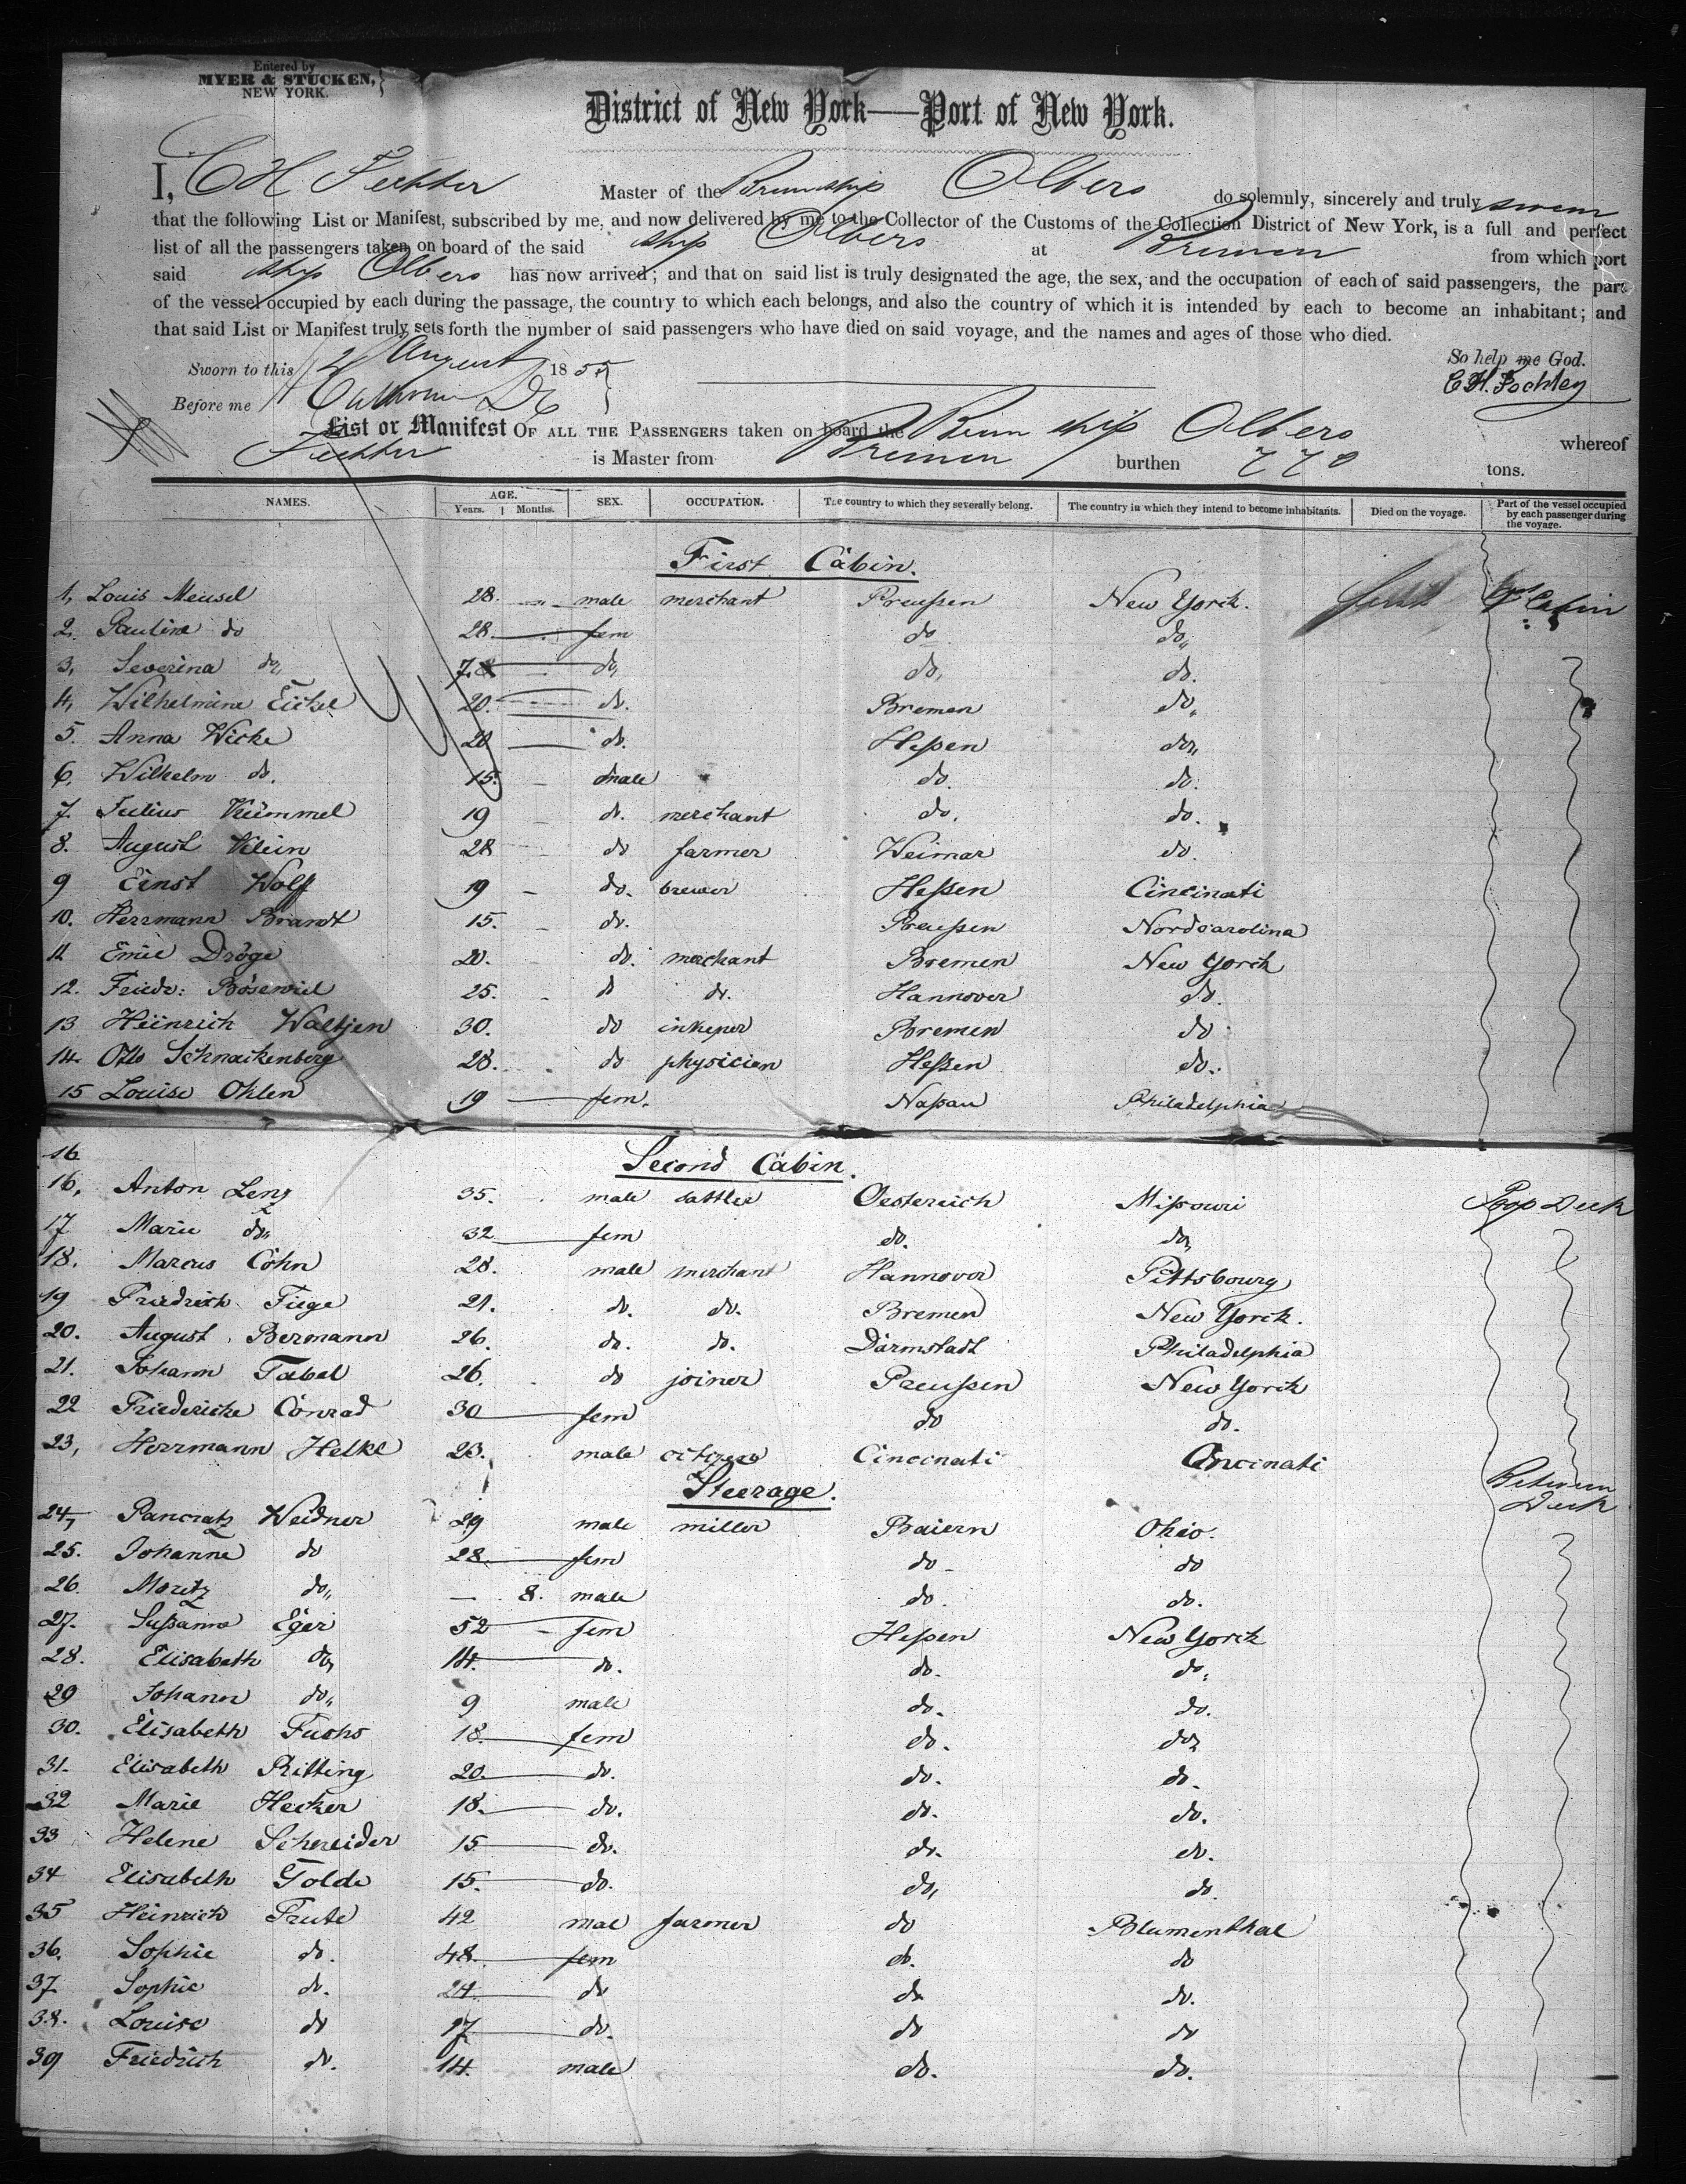 Entered by
MYER & STUCKEN,
NEW YORK.
District of New York—Port of New York.
I, C H Fechter Master of the Brem ship Olbers do solemnly, sincerely and truly swear
that the following List or Manifest, subscribed by me, and now delivered by me to the Collector of the Customs of the Collection District of New York, is a full and perfect
list of all the passengers taken on board of the said ship Olbers at Bremen from which port
said ship Olbers has now arrived; and that on said list is truly designated the age, the sex, and the occupation of each of said passengers, the part
of the vessel occupied by each during the passage, the country to which each belongs, and also the country of which it is intended by each to become an inhabitant; and
that said List or Manifest truly sets forth the number of said passengers who have died on said voyage, and the names and ages of those who died.
So help me God.
Sworn to this August 1855
Before me
List or Manifest OF ALL THE PASSENGERS taken on board the Brem ship Olbers whereof
Fechter is Master from Bremen burthen 770 tons.
NAMES. AGE. Years. Months. SEX. OCCUPATION. The country to which they severally belong. The country in which they intend to become inhabitants. Died on the voyage. Part of the vessel occupied by each passenger during the voyage.
First Cabin.
1, Louis Meusel 28. male merchant Preußen New Yorck. Cabin
2. Pauline do 28. fem do do,,
3, Severina do,, 7. do,, do, do.
4, Wilhelmine Eickel 20. do. Bremen do,,
5. Anna Wicke 20 do. Heßen do,,
6. Wilhelm do. 15. male do. do.
7. Julius Kümmel 19 do. merchant do. do.
8. August Klein 28 do farmer Weimar do.
9 Ernst Wolff 19 do. brewer Heßen Cincinati
10. Herrmann Brandt 15. do. Preußen Nordcarolina
11 Emil Dröge 20. do. merchant Bremen New Yorck
12. Friedr: Bösewiel 25. do do. Hannover do.
13 Heinrich Waltjen 30. do inkeper Bremen do
14. Otto Schnackenberg 28. do physician Heßen do.
15 Louise Ohlen 19 fem. Naßau Philadelphia
16
Second Cabin.
16, Anton Lenz 35. male sattler Oestereich Mißouri Poop Deck
17 Marie do,, 32 fem do. do,,
18. Marcus Cohn 28. male merchant Hannover Pittsbourg
19 Friedrich Fiege 21. do. do. Bremen New Yorck.
20. August Bermann 26. do. do. Darmstadt Philadelphia
21. Johann Tabel 26. do joiner Preußen New Yorck
22 Friedericke Conrad 30 fem do do.
23, Herrmann Helke 23. male citizen Cincinati Cincinati
Steerage.
Between Deck
24, Pancratz Weidner 29 male miller Baiern Ohio.
25. Johanne do 28 fem do do
26. Moritz do,, 8. male do. do.
27. Sußanne Eger 52 fem Heßen New Yorck
28. Elisabeth do,, 14. do. do. do.
29 Johann do,, 9 male do. do.
30. Elisabeth Fuchs 18. fem do. do,,
31. Elisabeth Ritting 20. do. do. do.
32 Marie Hecker 18. do. do. do.
33 Helene Schneider 15 do. do. do.
34 Elisabeth Golde 15. do. do, do.
35 Heinrich Trute 42 mal farmer do Blumenthal
36. Sophie do. 48. fem do. do
37. Sophie do. 24. do do do.
38. Louise do 17 do. do do
39 Friedrich do. 14. male do. do.